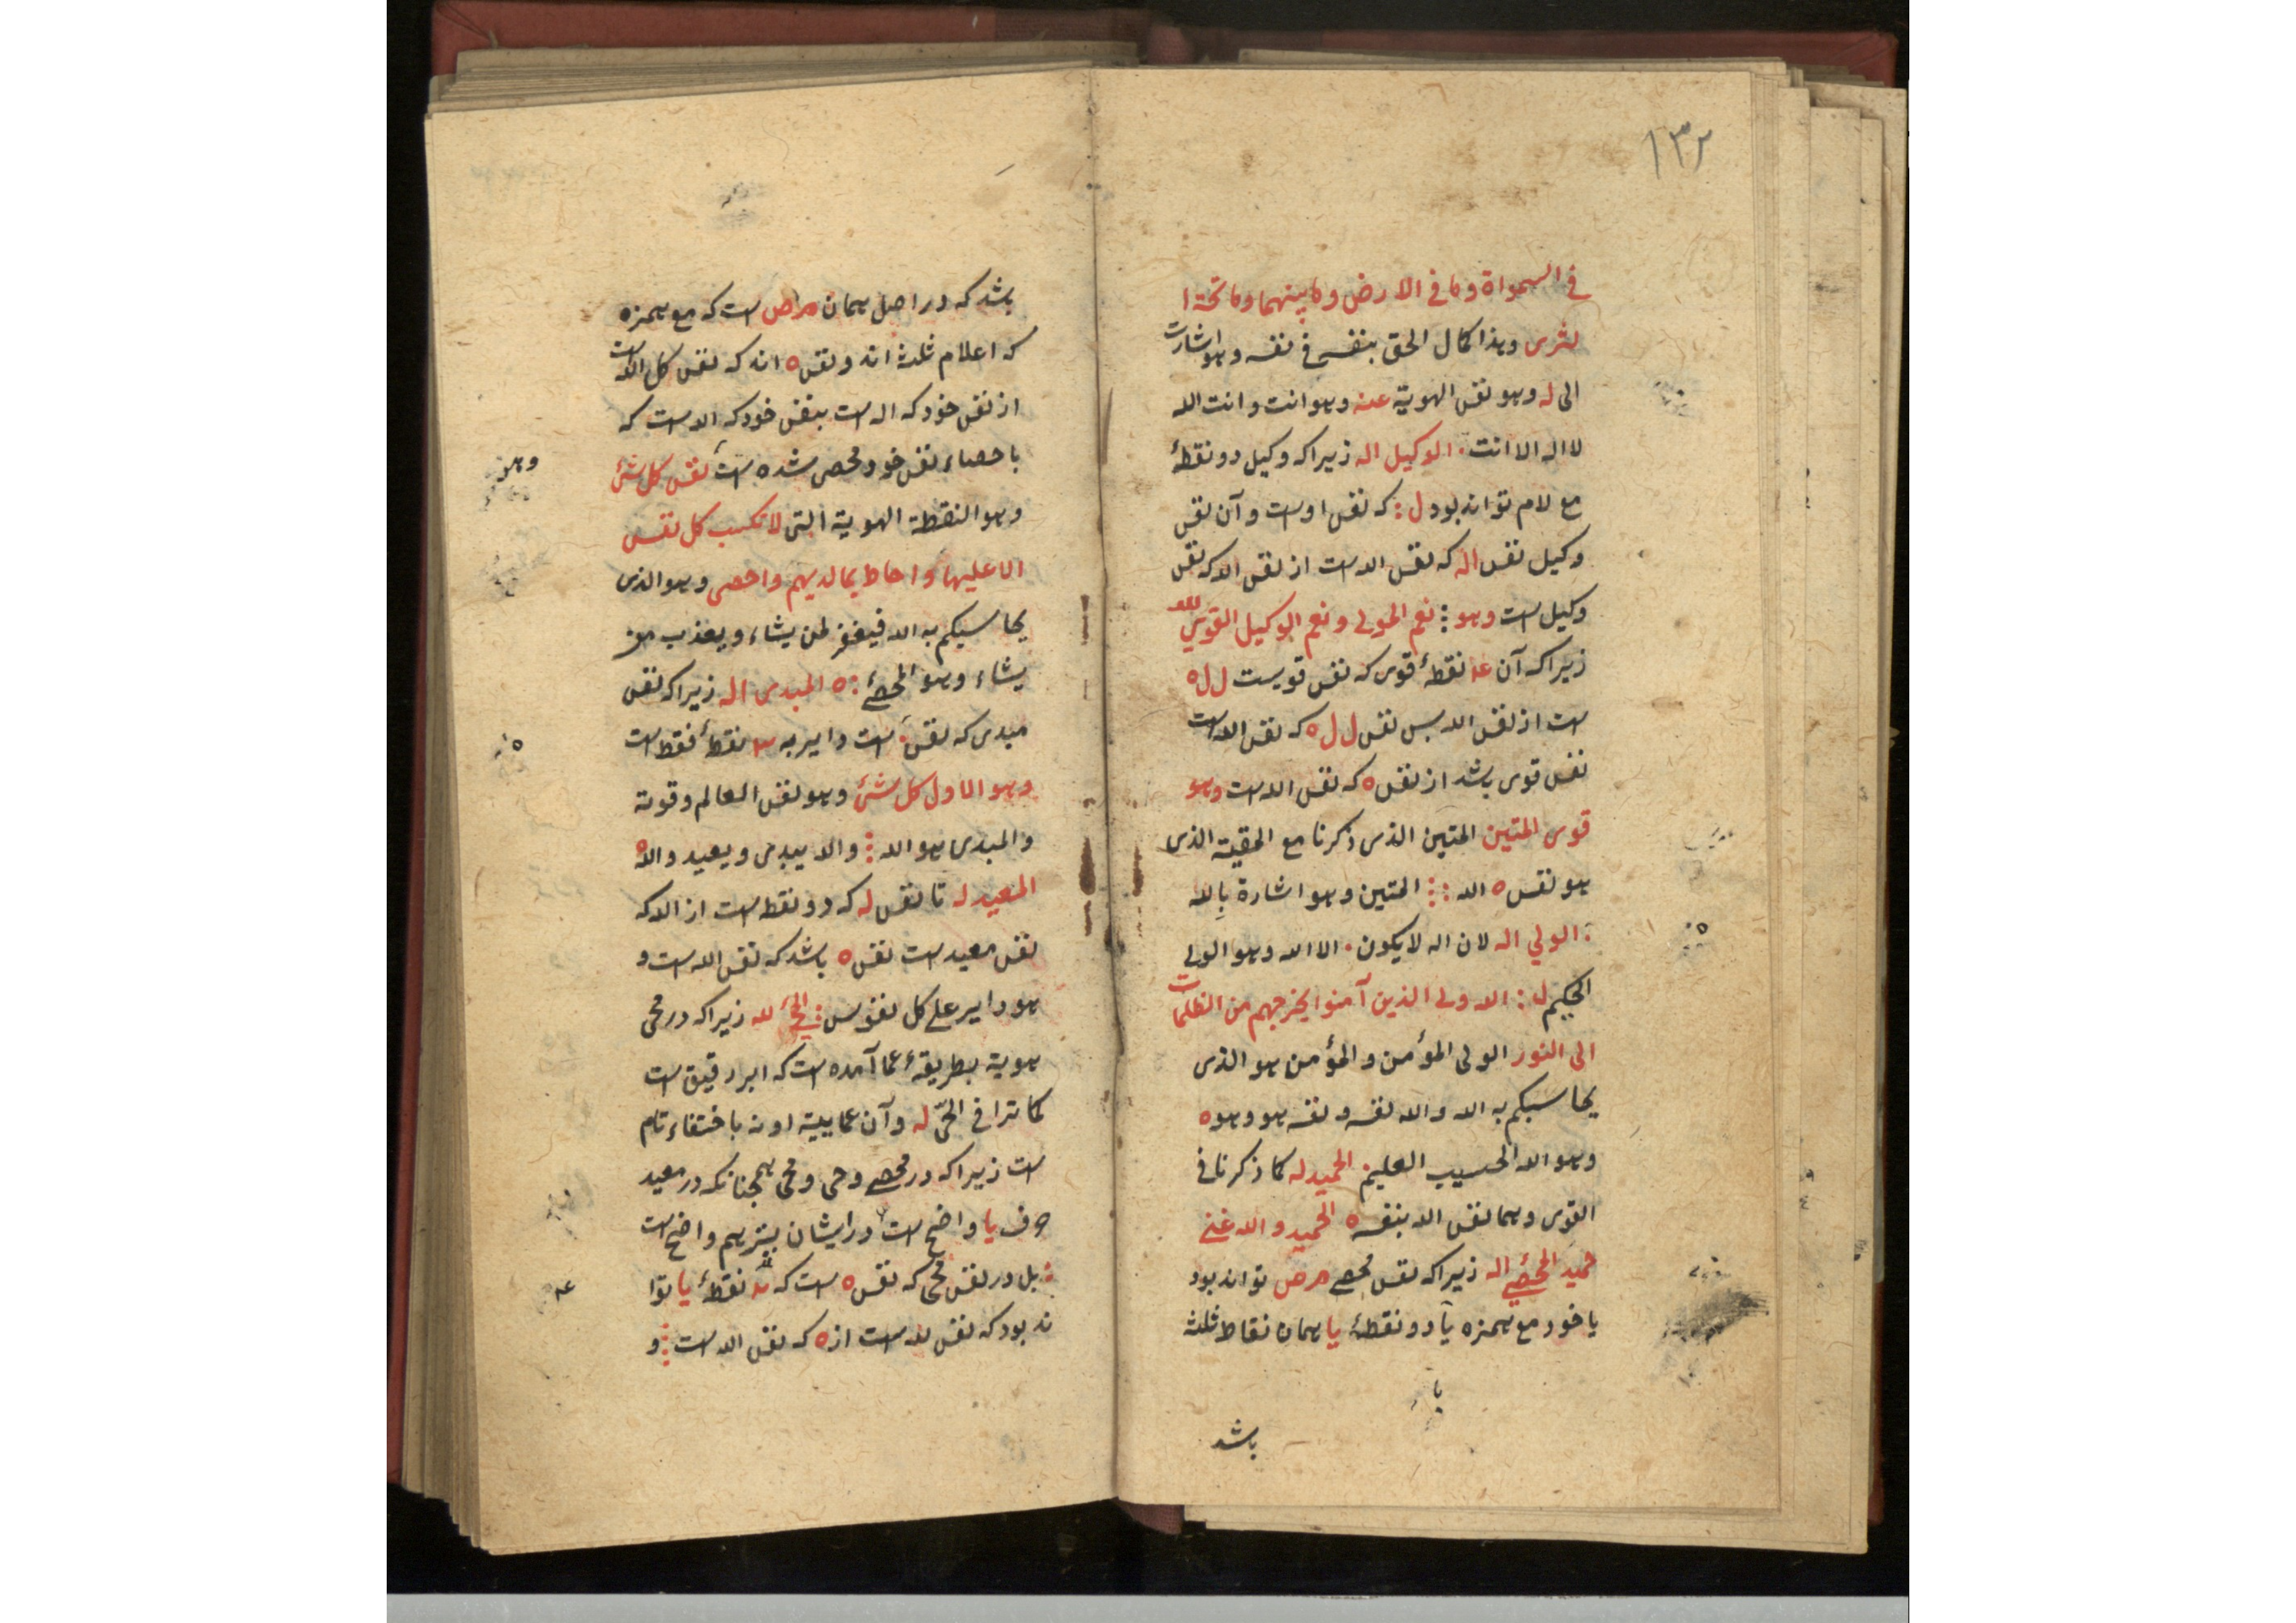 ١٣٢
فی السمواة وما فی الارض وما بینهما وما تحة ا
لثری وهذا کمال الحق بنفسه فی نفسه وهو اشارت
الی له وهو نفس الهویة عنه وهو انت وانت الله
لا اله الا انت . الوکیل اله زیرا که وکیل دو نقطهٔ
مع لام تواند بود ل : که نفس اوست و آن نفس
وکیل نفس اله که نفس الله است از نفس الله که نفس
وکیل است وهو : نعم المولی ونعم الوکیل القوی لله
زیرا که آن نقطهٔ قوی که نفس قویست ل ل ه
است از نفس الله بس نفس ل ل ه که نفس الله است
نفس قوی باشد از نفس ه که نفس الله است وهو
قوی المتین المتین الذی ذکرنا مع المقیت الذی
هو نفس ه الله : : المتین وهو اشارة بالله
: الولی اله لان اله لا یکون . الا الله وهو الولی
الحکیم ل : الله ولی الذین آمنوا یخرجهم من الظلمات
الی النور الولی المؤمن والمؤمن هو الذی
یحاسبکم به الله والله نفسه ونفسه هو وهو ه
وهو الله الحسیب العلیم الحمید له کما ذکرنا فی
القوی وهما نفس الله بنفسه ه الحمید والله غنی
حمید المحصی اله زیرا که نفس محصی م ص تواند بود
یا خود مع همزه یا دو نقطهٔ یا همان نقاط ثلثه
باشد
باشد که در اصل همان م ص است که مع همزه
که اعلام ثلثه اند و نفس ه اند که نفس کل الله است
از نفس خود که اله است بنفس خود که الله است که
باحصاء نفس خود محصی شده است نفس کل شئ
وهو
وهو النقطة الهویة التی لا تکسب کل نفس
الا علیها واحاط بما لدیهم واحصی وهو الذی
یحاسبکم به الله فیغفر لمن یشاء ویعذب من
یشاء وهو المحصی : ه المبدی اله زیرا که نفس
مبدی که نفس است و ایر به ٣ نقطهٔ فقط است
وهو الاول کل شئ وهو نفس العالم وقوته
والمبدی هو الله : والله یبدی ویعید والله
المعید له تا نفس له که دو نقطه است از الله که
نفس معید است نفس ه باشد که نفس الله است و
هو دایر علی کل نفوس : المحی لله زیرا که در محی
هویة بطریقهٔ عما آمده است که ابر رقیق است
کما ترا فی الحیّ له و آن عماییة او نه باختفاء تام
است زیرا که در محصی و حی و محی همچنانکه در معید
حرف یا واضح است در ایشان بیتر هم واضح است
: بل در نفس محی که نفس ه است که نقطهٔ یا توا
ند بود که نفس لله است از ه که نفس الله است : و